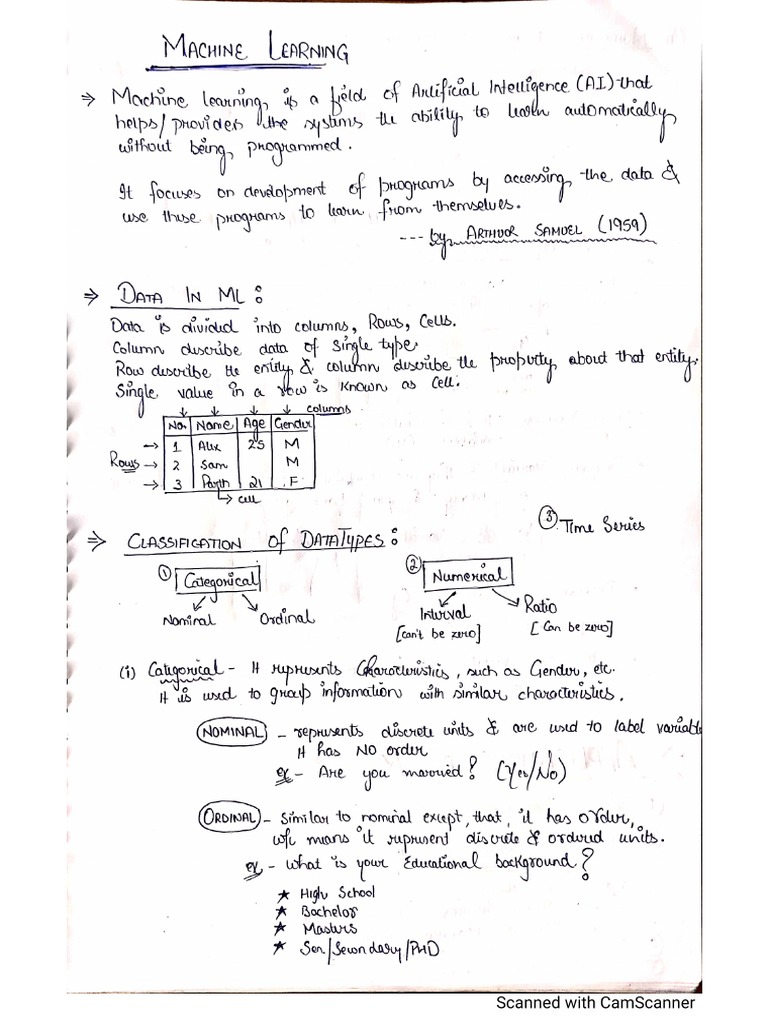 MACHINE LEARNING
⇒ Machine learning is a field of Artificial Intelligence (AI) that
helps/provides the systems the ability to learn automatically
without being programmed.
It focuses on development of programs by accessing the data &
use these programs to learn from themselves.
--- by ARTHUOR SAMUEL (1959)
⇒ DATA IN ML :
Data is divided into columns, Rows, Cells.
Column describe data of single type.
Row describe the entity & column describe the property about that entity.
Single value in a row is known as cell.
columns
No. Name Age Gender
→ 1 Alex 25 M
Rows → 2 Sam M
→ 3 Parth 21 F
→ cell
③ Time Series
⇒ CLASSIFICATION of DATATYPES :
① Categorical ② Numerical
Nominal Ordinal Interval Ratio
[can't be zero] [can be zero]
(i) Categorical - It represents Characteristics, such as Gender, etc.
It is used to group information with similar characteristics.
NOMINAL - represents discrete units & are used to label variable
It has NO order
ex - Are you married? (Yes/No)
ORDINAL - Similar to nominal except, that, it has order,
w/c means it represent discrete & ordered units.
ex - What is your Educational background?
★ High School
★ Bachelor
★ Masters
★ Sen/Secondary/PHD
Scanned with CamScanner